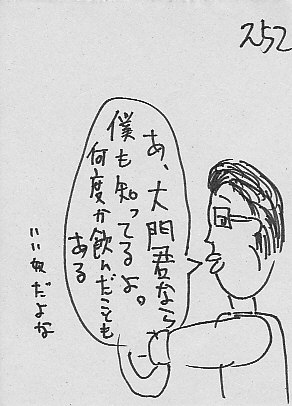 252
あ、大門君なら
僕も知ってるよ。
何度か飲んだことも
ある
いい奴だよな